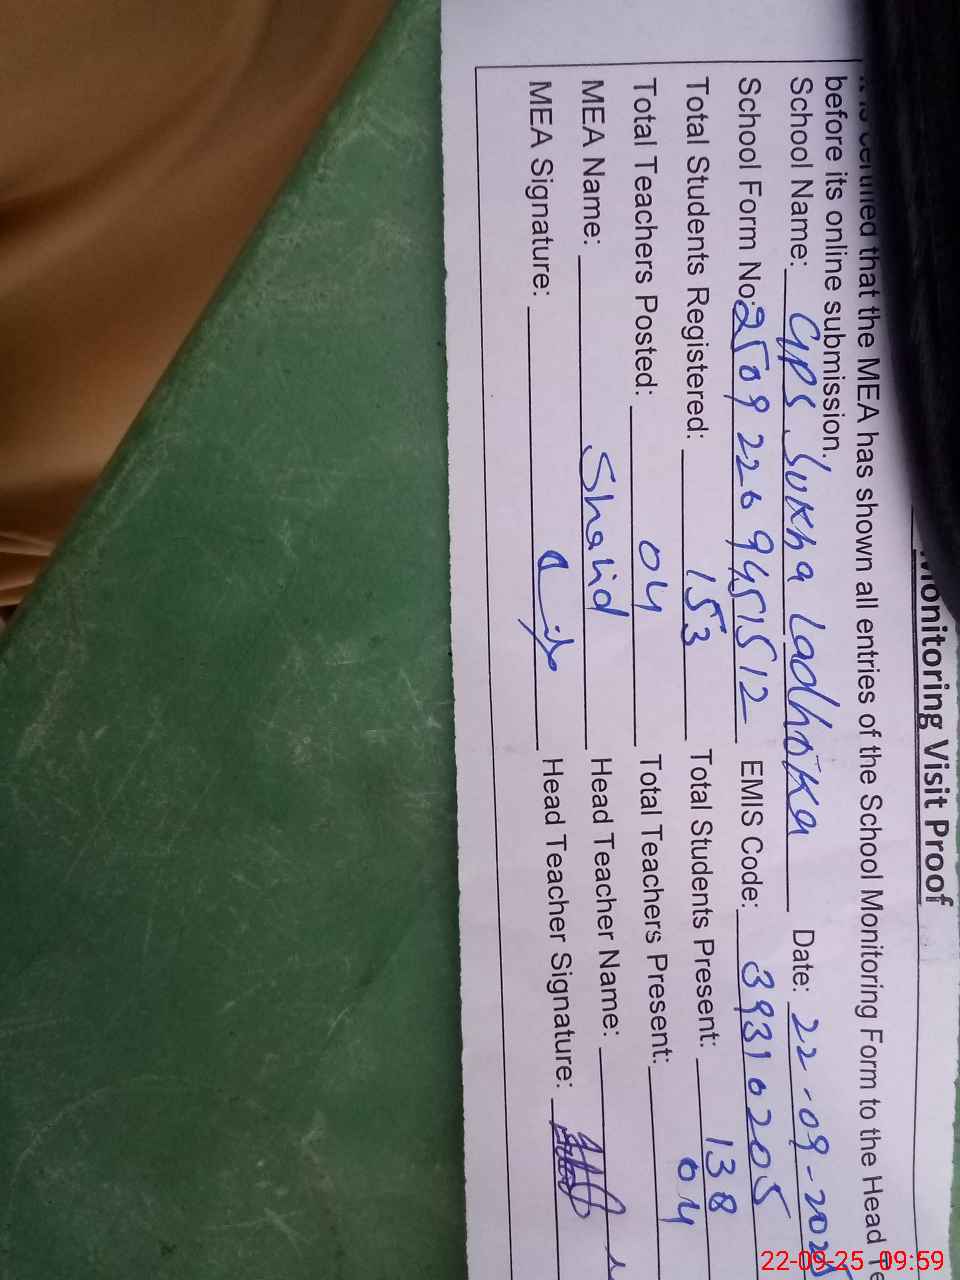 Monitoring Visit Proof
that the MEA has shown all entries of the School Monitoring Form to the Head
before its online submission.
School Name: GPS Sukha Ladhoka Date: 22-09-2025
School Form No: 2509226945512 EMIS Code: 39310205
Total Students Registered: 153 Total Students Present: 138
Total Teachers Posted: 04 Total Teachers Present: 04
MEA Name: Shahid Head Teacher Name:
MEA Signature: Head Teacher Signature:
22-09-25 09:59